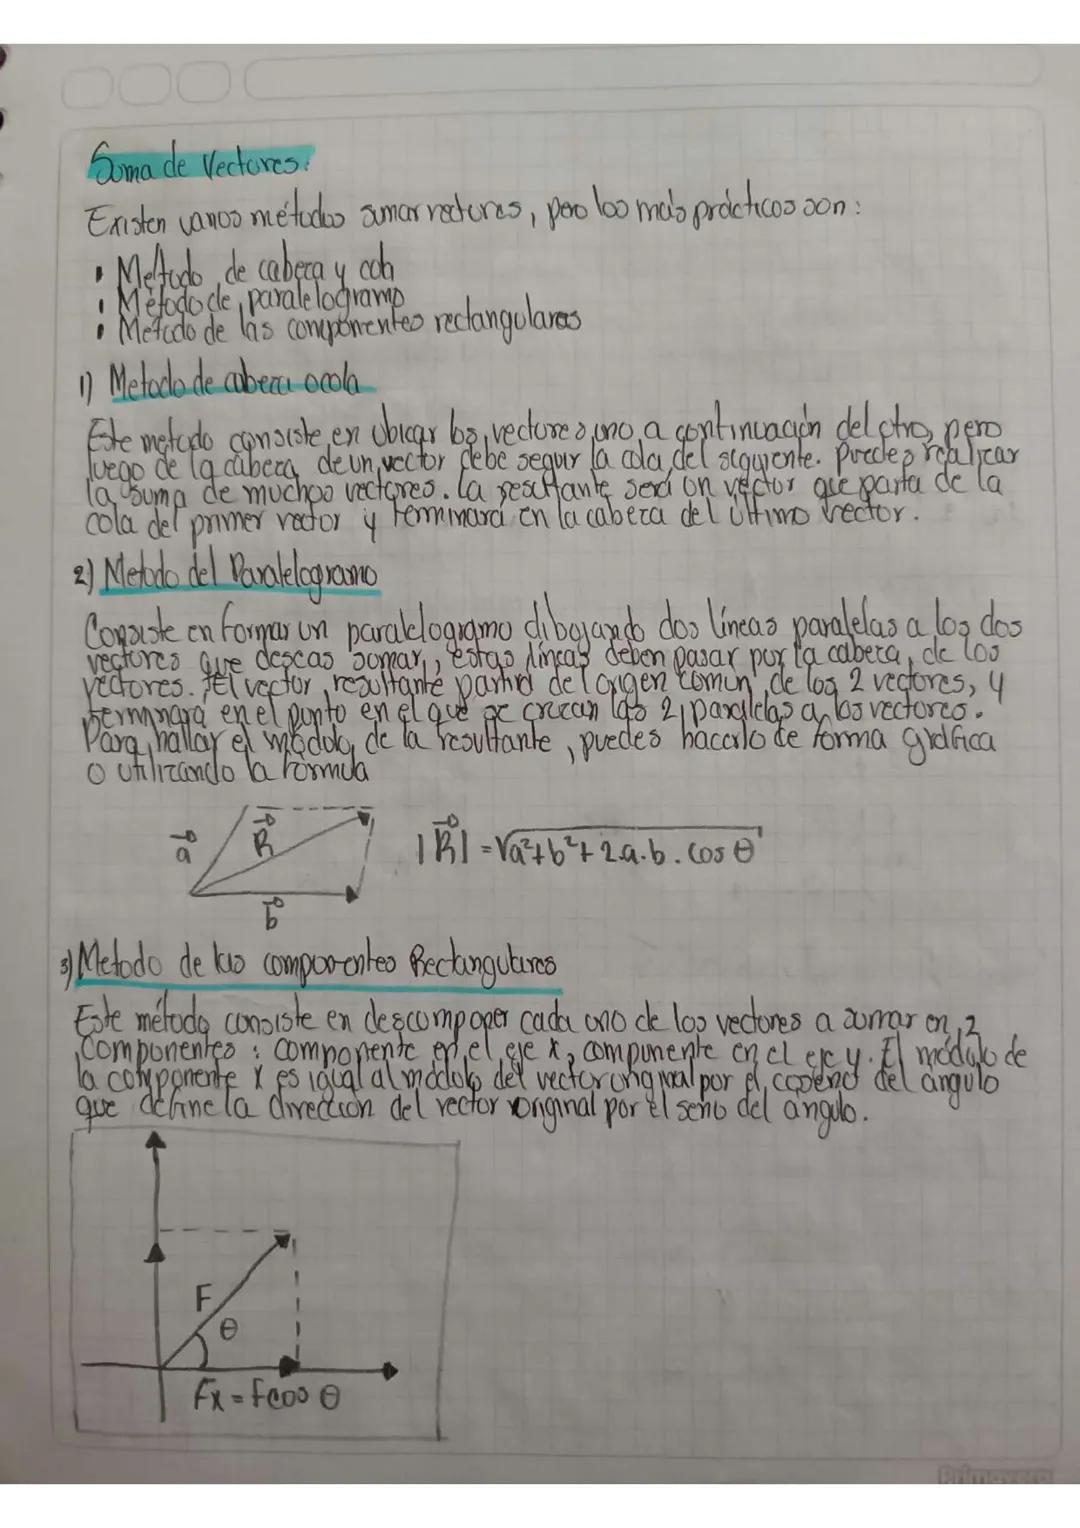 Suma de Vectores:
Existen varios métodos sumar vectores, pero los más prácticos son:
• Metodo de cabeza y cola
• Método de paralelogramo
• Metodo de las componentes rectangulares
1) Metodo de cabeza o cola
Este metodo consiste en ubicar los vectores uno a continuación del otro, pero
luego de la cabeza de un vector debe seguir la cola del siguiente. Puedes realizar
la suma de muchos vectores. La resultante será un vector que parta de la
cola del primer vector y terminará en la cabeza del último vector.
2) Metodo del Paralelogramo
Consiste en formar un paralelogramo dibujando dos líneas paralelas a los dos
vectores que deseas sumar, estas líneas deben pasar por la cabeza, de los
vectores. El vector resultante partirá del origen común de los 2 vectores, y
terminará en el punto en el que se cruzan las 2 paralelas a los vectores.
Para hallar el módulo de la resultante, puedes hacerlo de forma gráfica
o utilizando la fórmula
a⃗ R⃗ |R⃗| = √a²+b²+2.a.b.cos θ
b⃗
3) Metodo de las componentes Rectangulares
Este método consiste en descomponer cada uno de los vectores a sumar en 2
componentes: componente en el eje x, componente en el eje y. El módulo de
la componente x es igual al módulo del vector original por el coseno del ángulo
que define la dirección del vector original por el seno del ángulo.
F
θ
Fx = Fcos θ
Primavera